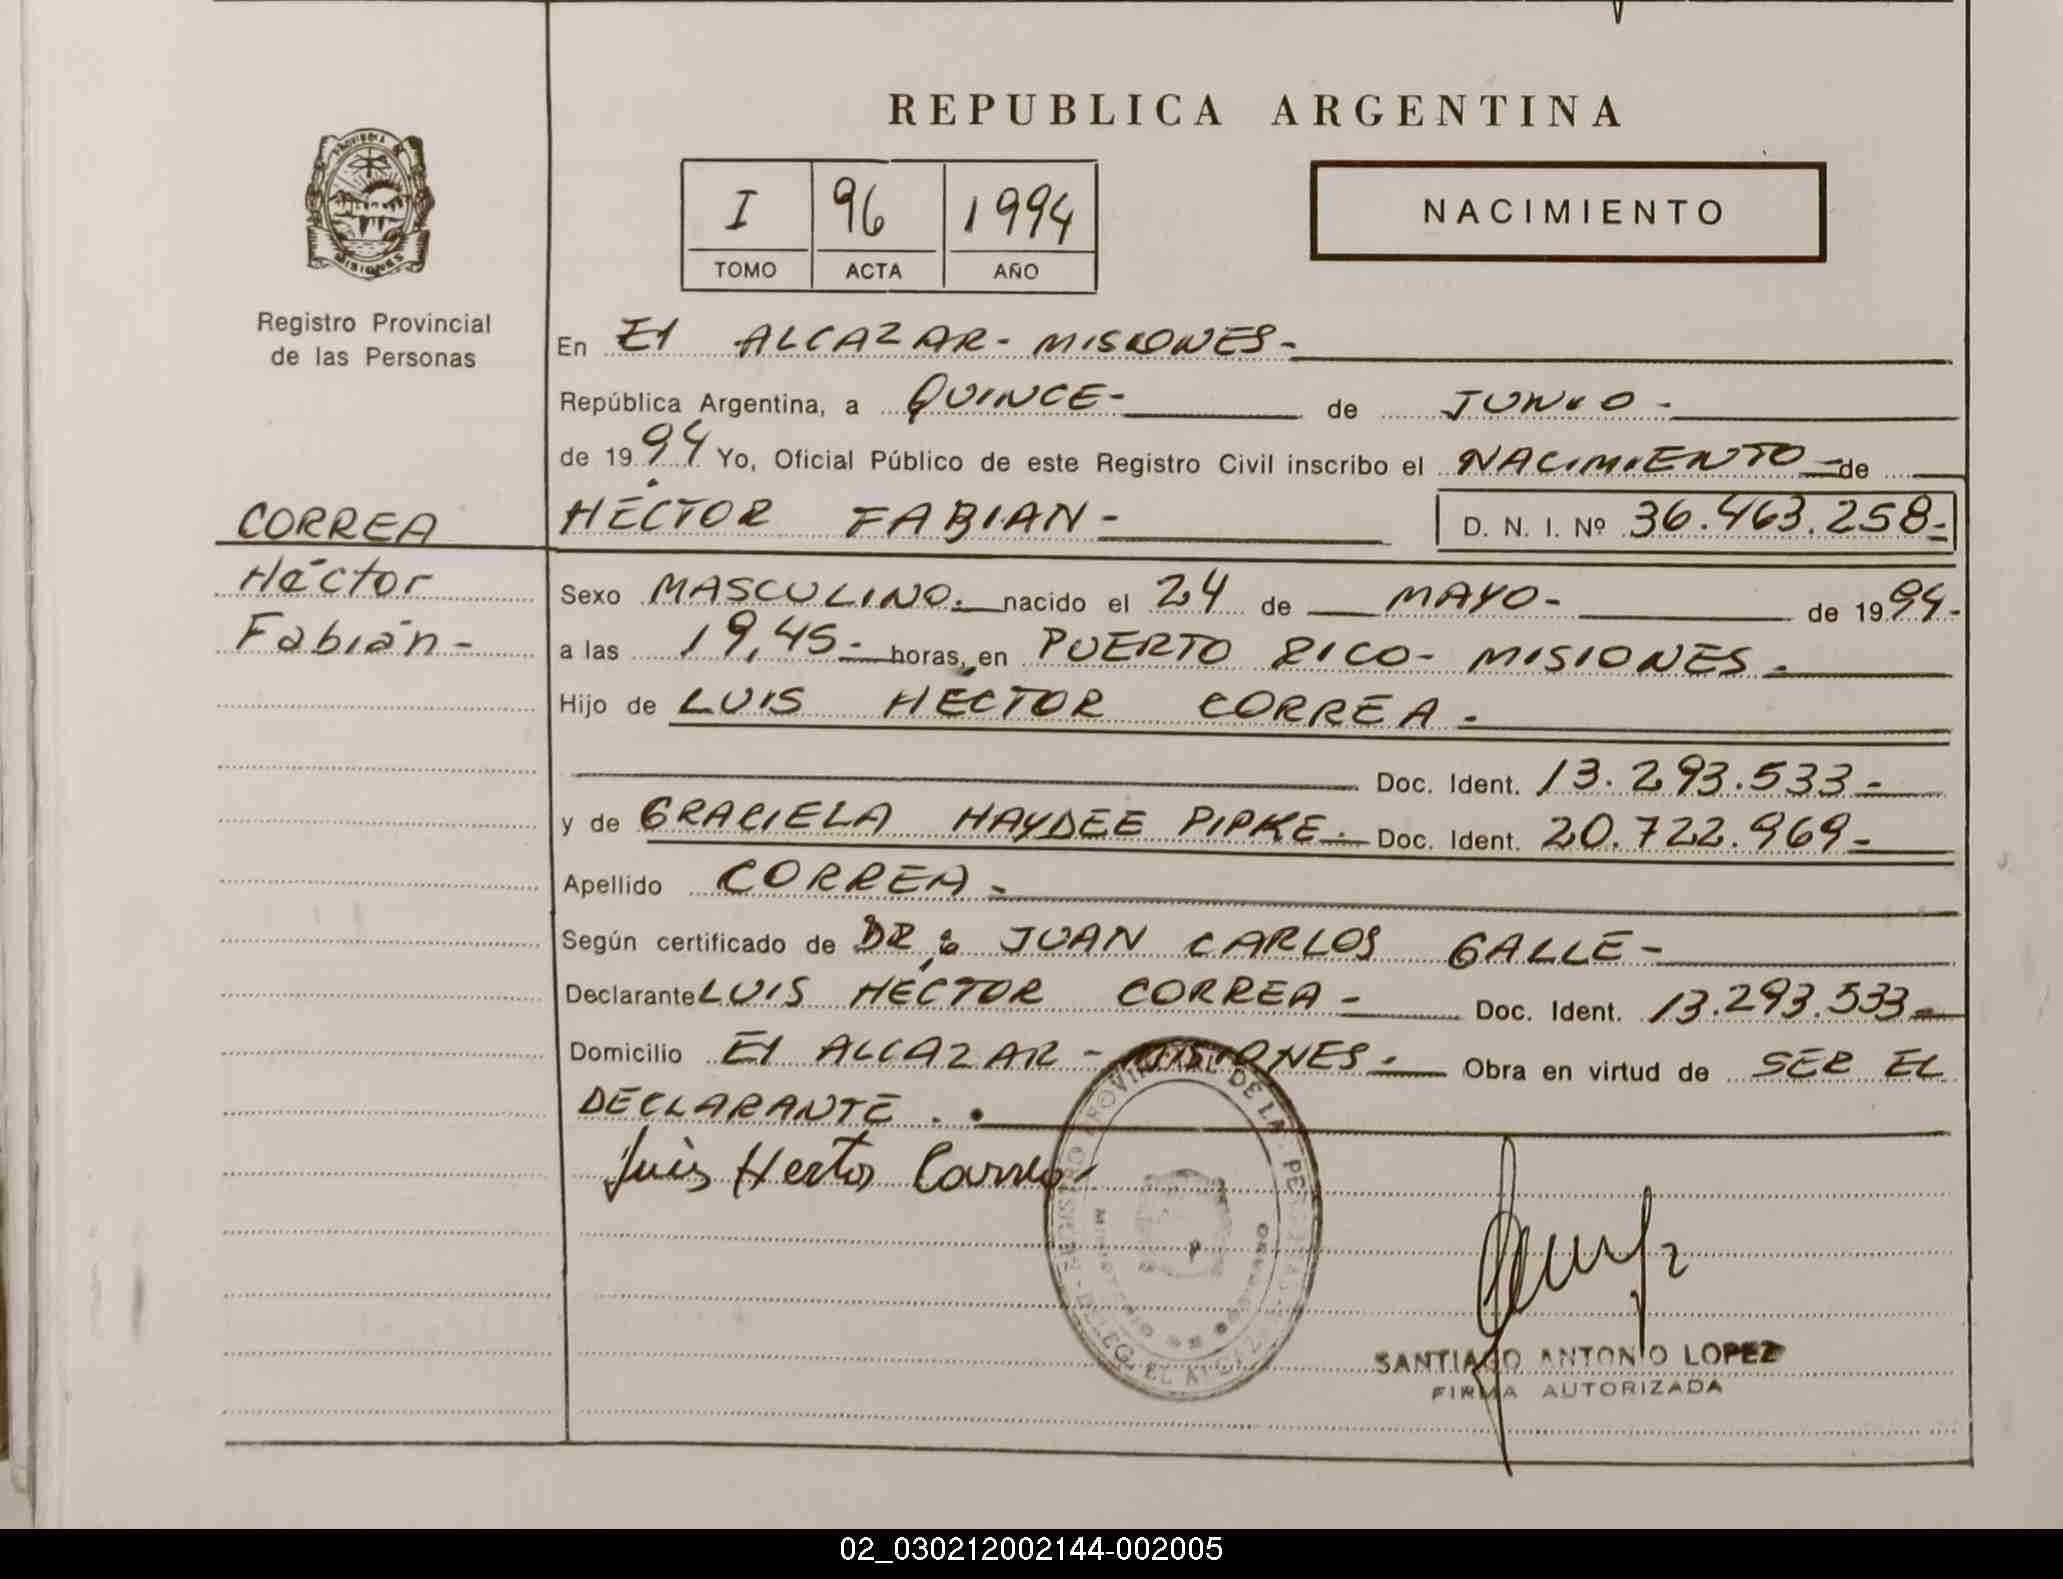 REPUBLICA ARGENTINA
PROVINCIA DE
MISIONES
Registro Provincial
de las Personas
I 96 1994
TOMO ACTA AÑO
NACIMIENTO
En El ALCAZAR - MISIONES -
República Argentina, a QUINCE - de JUNIO -
de 1994 Yo, Oficial Público de este Registro Civil inscribo el NACIMIENTO - de
HÉCTOR FABIAN - D. N. I. Nº 36.463.258 -
CORREA
Héctor
Fabián -
Sexo MASCULINO. nacido el 24 de MAYO - de 1994.-
a las 19,45 - horas, en PUERTO RICO - MISIONES -
Hijo de LUIS HÉCTOR CORREA -
Doc. Ident. 13.293.533 -
y de GRACIELA HAYDEE PIPKE. Doc. Ident. 20.722.969 -
Apellido CORREA -
Según certificado de DR: JUAN CARLOS GALLE -
Declarante LUIS HÉCTOR CORREA - Doc. Ident. 13.293.533 -
Domicilio El ALCAZAR - MISIONES - Obra en virtud de SER EL
DECLARANTE . .
Luis Hector Correa
REGISTRO PROVINCIAL DE LA PERSONAS - DELEG. EL ALCAZAR
MINISTERIO GOBIERNO
SANTIAGO ANTONIO LOPEZ
FIRMA AUTORIZADA
02_030212002144-002005